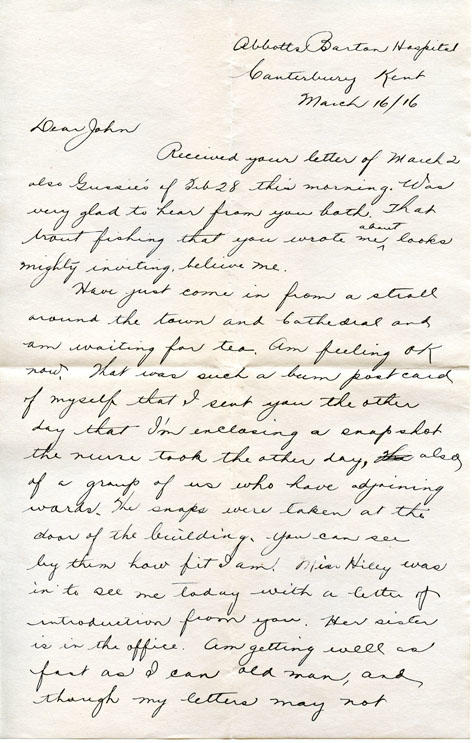 Abbotts Barton Hospital
Canterbury Kent
March 16/16
Dear John
Received your letter of March 2
also Gussie's of Feb 28 this morning. Was
very glad to hear from you both. That
trout fishing that you wrote me about looks
mighty inviting, believe me.
Have just come in from a stroll
around the town and Cathedral and
am waiting for tea. Am feeling OK
now. That was such a bum post card
of myself that I sent you the other
day that I'm enclosing a snapshot
the nurse took the other day, also
of a group of us who have adjoining
wards. The snaps were taken at the
door of the building. You can see
by them how fit I am. Miss Hiley was
in to see me today with a letter of
introduction from you. Her sister
is in the office. Am getting well as
fast as I can old man, and,
though my letters may not